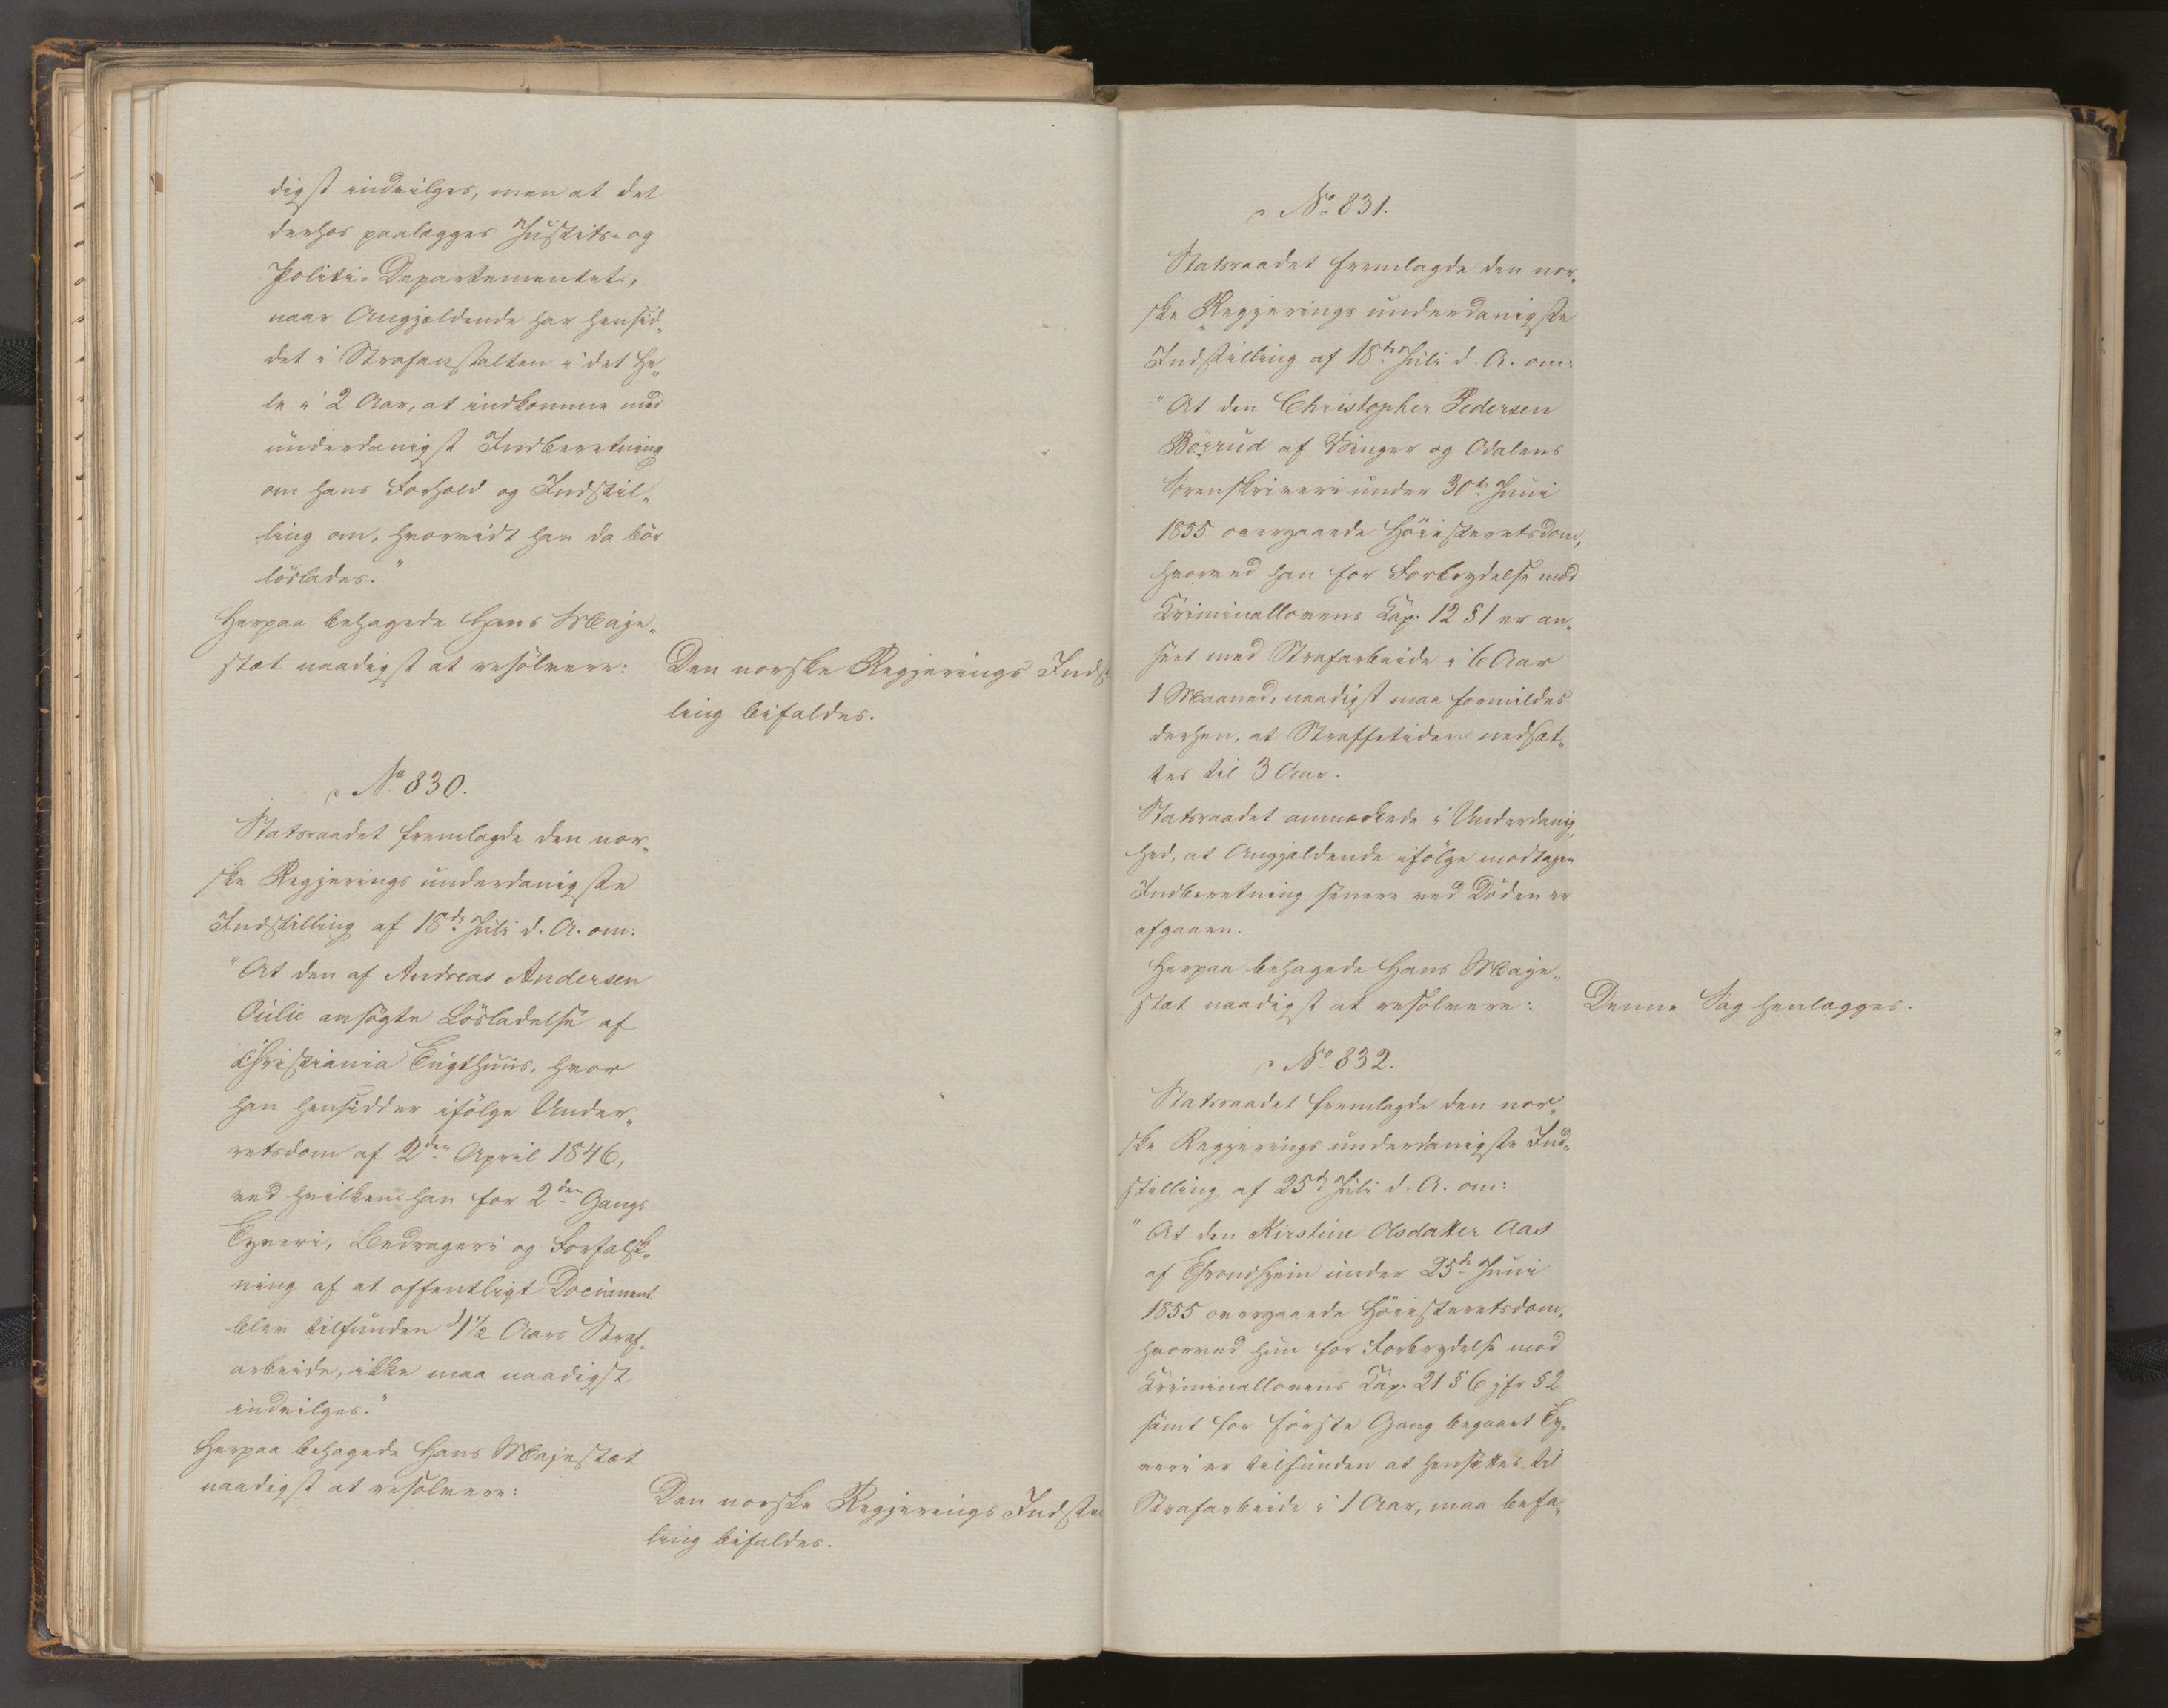 digst indvilges, men at det
derhos paalægges Justits- og
Politi-Departementet,
naar Angjældende har hensid„
det i Strafanstalten i det He„
le i 2 Aar, at indkomme med
underdanigst Indberetning
om hans Forhold og Indstil„
ling om, hvorvidt han da bör
löslades."
Herpaa behagede Hans Maje„
stæt naadigst at resolvere:
Den norske Regjerings Indst
ling bifaldes.
No 830.
Statsraadet fremlagde den nor„
ske Regjerings underdanigste
Indstilling af 18de Juli d. A. om:
"At den af Andreas Andersen
Oulie ansögte Lösladelse af
Christiania Tugthuus, hvor
han hensidder ifölge Under„
retsdom af 2den April 1846,
ved hvilken han for 2den Gangs
Tyveri, Bedrageri og Forfalsk„
ning af et offentligt Document
blev tilfunden 4½ Aars Straf„
arbeide, ikke maa naadigst
indvilges."
Herpaa behagede Hans Majestæt
naadigst at resolvere:
Den norske Regjerings Indste
ling bifaldes.
No 831.
Statsraadet fremlagde den nor„
ske Regjerings underdanigste
Indstilling af 18de Juli d. A. om:
"At den Christopher Pedersen
Börrud af Vinger og Odalens
Sorenskriveri under 30te Juni
1855 overgaaede Höiesteretsdom,
hvorved han for Forbrydelse mod
Kriminallovens Kap. 12 § 1 er an„
seet med Strafarbeide i 6 Aar
1 Maaned, naadigst maa formildes
derhen, at Straffetiden nedsæt„
tes til 3 Aar.
Statsraadet anmærkede i Underdanig„
hed, at Angjældende ifölge modtagen
Indberetning senere ved Döden er
afgaaen.
Herpaa behagede Hans Maje„
stæt naadigst at resolvere:
Denne Sag henlægges.
No 832.
Statsraadet fremlagde den nor„
ske Regjerings underdanigste Ind„
stilling af 25de Juli d. A. om:
"At den Kirstine Olsdatter Aas
af Throndhjem under 25de Juni
1855 overgaaede Höiesteretsdom,
hvorved hun for Forbrydelse mod
Kriminallovens Kap. 21 § 6 jfr § 2
samt for förste Gang begaaet Ty„
veri er tilfunden at hensættes til
Strafarbeide i 1 Aar, maa befa„